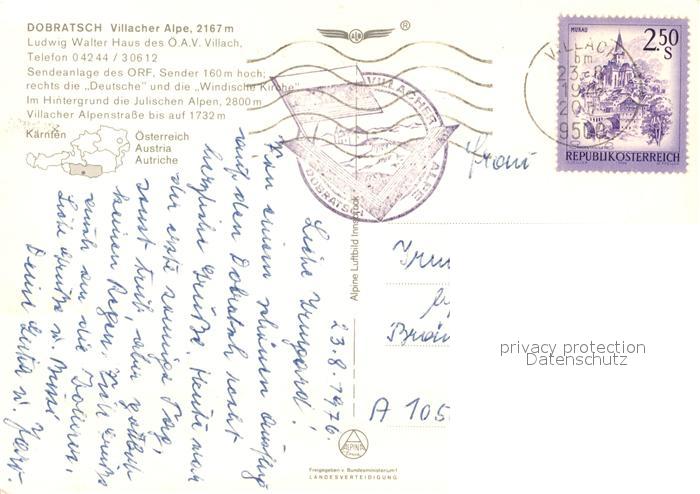 DOBRATSCH Villacher Alpe, 2167 m
Ludwig Walter Haus des Ö.A.V. Villach,
Telefon 04244 / 30612
Sendeanlage des ORF, Sender 160 m hoch;
rechts die „Deutsche" und die „Windische Kirche"
Im Hintergrund die Julischen Alpen, 2800 m
Villacher Alpenstraße bis auf 1732 m
Kärnten
Österreich
Austria
Autriche
®
VILLACHER ALPE
DOBRATSCH
VILLACH
23.-8
20
9500
MURAU
2.50
S
REPUBLIK ÖSTERREICH
23.8.1976.
Liebe Irmgard!
Von einem schönen Ausflug
auf den Dobratsch recht
herzliche Grüße. Heute war
der erste sonnige Tag,
sonst trüb, aber gottlob
keinen Regen.
auch an die
Liebe Grüße u. Bussi
Deine
Frau
A 105
Alpine Luftbild Innsbruck
ALPINA
Freigegeben v. Bundesministerium f.
LANDESVERTEIDIGUNG.
privacy protection
Datenschutz